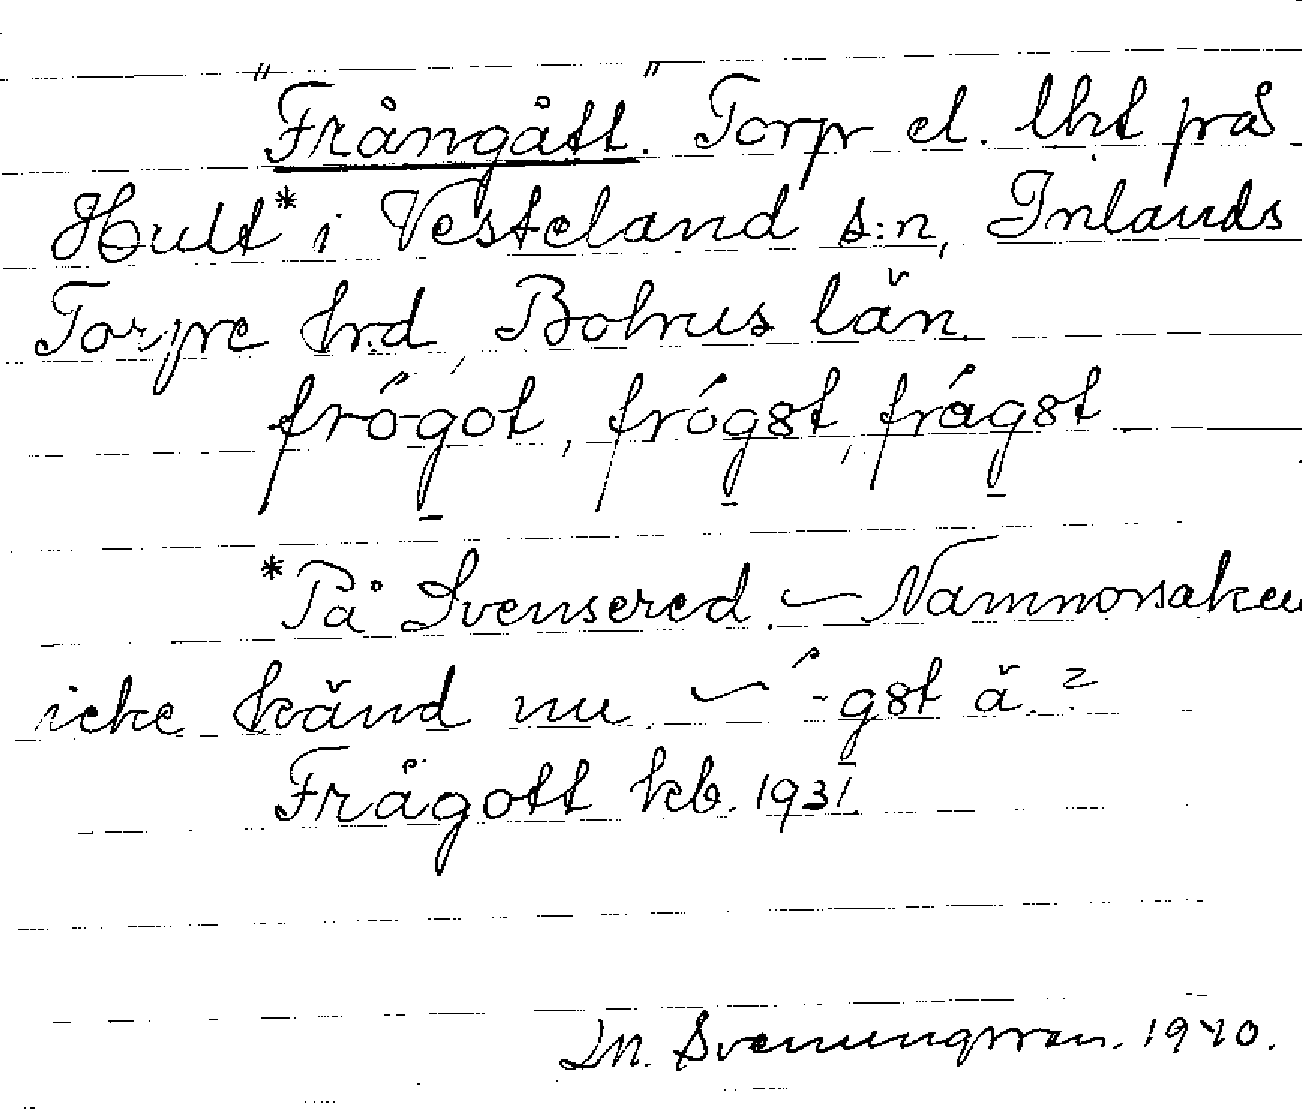 "Frångått". Torp el. lht på
Hult* i Vesteland s:n, Inlands
Torpe hrd, Bohus län.
frógot, frógət, frågət
*På Svensered. — Namnorsaken
icke känd nu. — ́-gət ä.?
Frågott kb. 1931
Svenungsson. 1940.